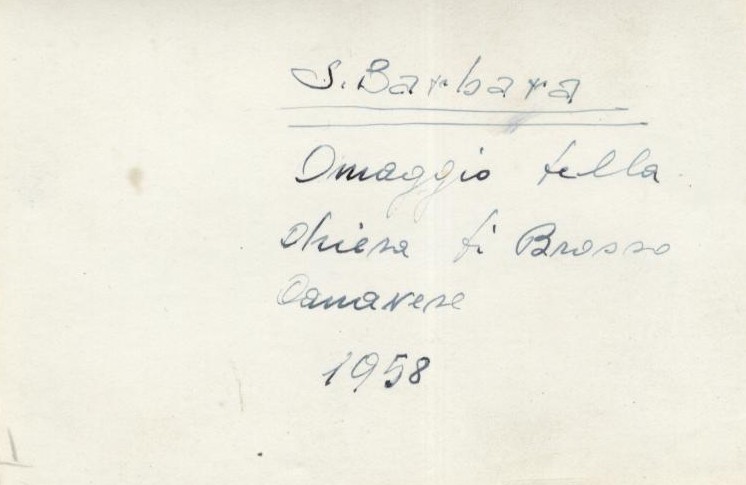 S. Barbara
Omaggio della
chiesa di Brosso
Canavese
1958